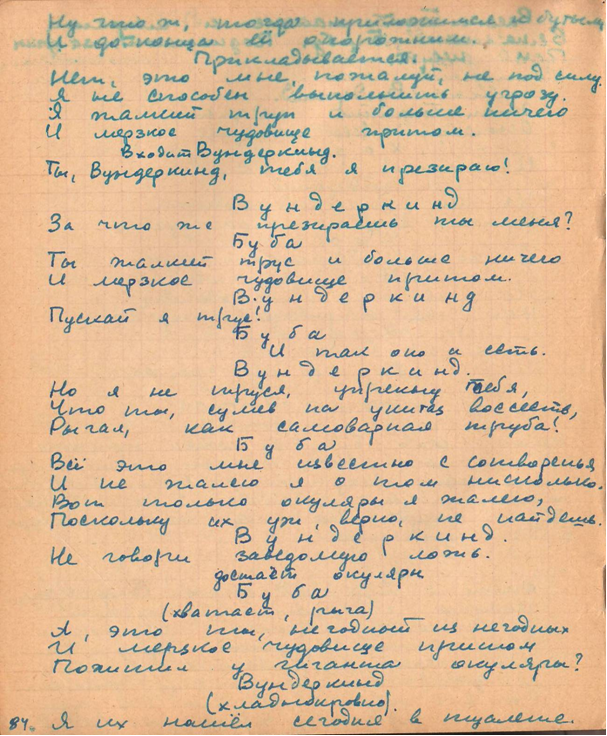 Ну что ж, тогда приложимся к бутыли
И до конца её опорожним.
Прикладывается.
Нет, это мне, пожалуй, не под силу.
Я не способен выполнить угрозу.
Я жалкий трус и больше ничего
И мерзкое чудовище притом.
Входит Вундеркинд.
Ты, Вундеркинд, тебя я презираю!
Вундеркинд
За что же презираешь ты меня?
Буба
Ты жалкий трус и больше ничего
И мерзкое чудовище притом.
Вундеркинд
Пускай я трус!
Буба
И так оно и есть.
Вундеркинд.
Но я не труся, упрекну тебя,
Что ты, сумев на унитаз воссесть,
Рычал, как самоварная труба!
Буба
Всё это мне известно с сотворенья
И не жалею я о том нисколько.
Вот только окуляры я жалею,
Поскольку их уж, верно, не найдёшь.
Вундеркинд.
Не говори заведомую ложь.
достаёт окуляры
Буба
(хватает, рыча)
А, это ты, негодный из негодных
И мерзкое чудовище притом
Похитил у гиганта окуляры?
Вундеркинд
(хладнокровно).
Я их нашёл сегодня в туалете.
84.